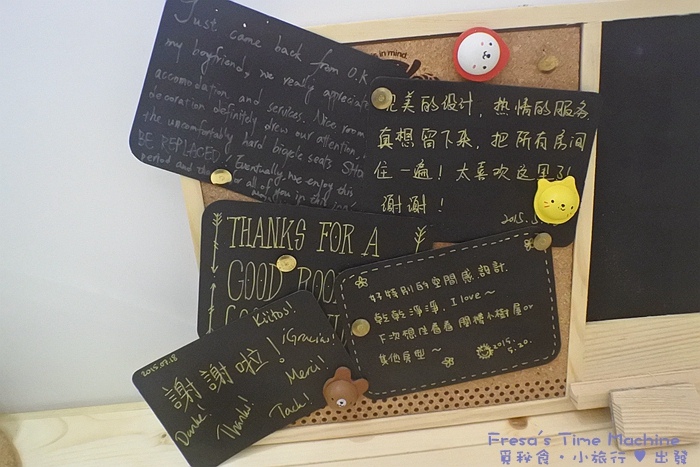 Just came back from O.K
my boyfriend, we really appreciate
accomodation and services. Nice room
decoration definitely drew our attention,
the uncomfortably hard bicycle seats
BE REPLACED! Eventually, we enjoy this
period and
in mind
完美的设计，热情的服务
真想留下来，把所有房间
住一遍！太喜欢这里了！
谢谢！
2015.5
THANKS FOR A
GOOD ROO
好特別的空間感設計
乾乾淨淨. I love~
下次想住看看 閣樓小樹屋or
其他房型~
2015.
5.20.
2015.07.18
Kiitos!
謝謝啦！
¡Gracias!
Merci!
Danke!
Thanks!
Tack!
Fresa's Time Machine
覓秘食・小旅行 ♥ 出發